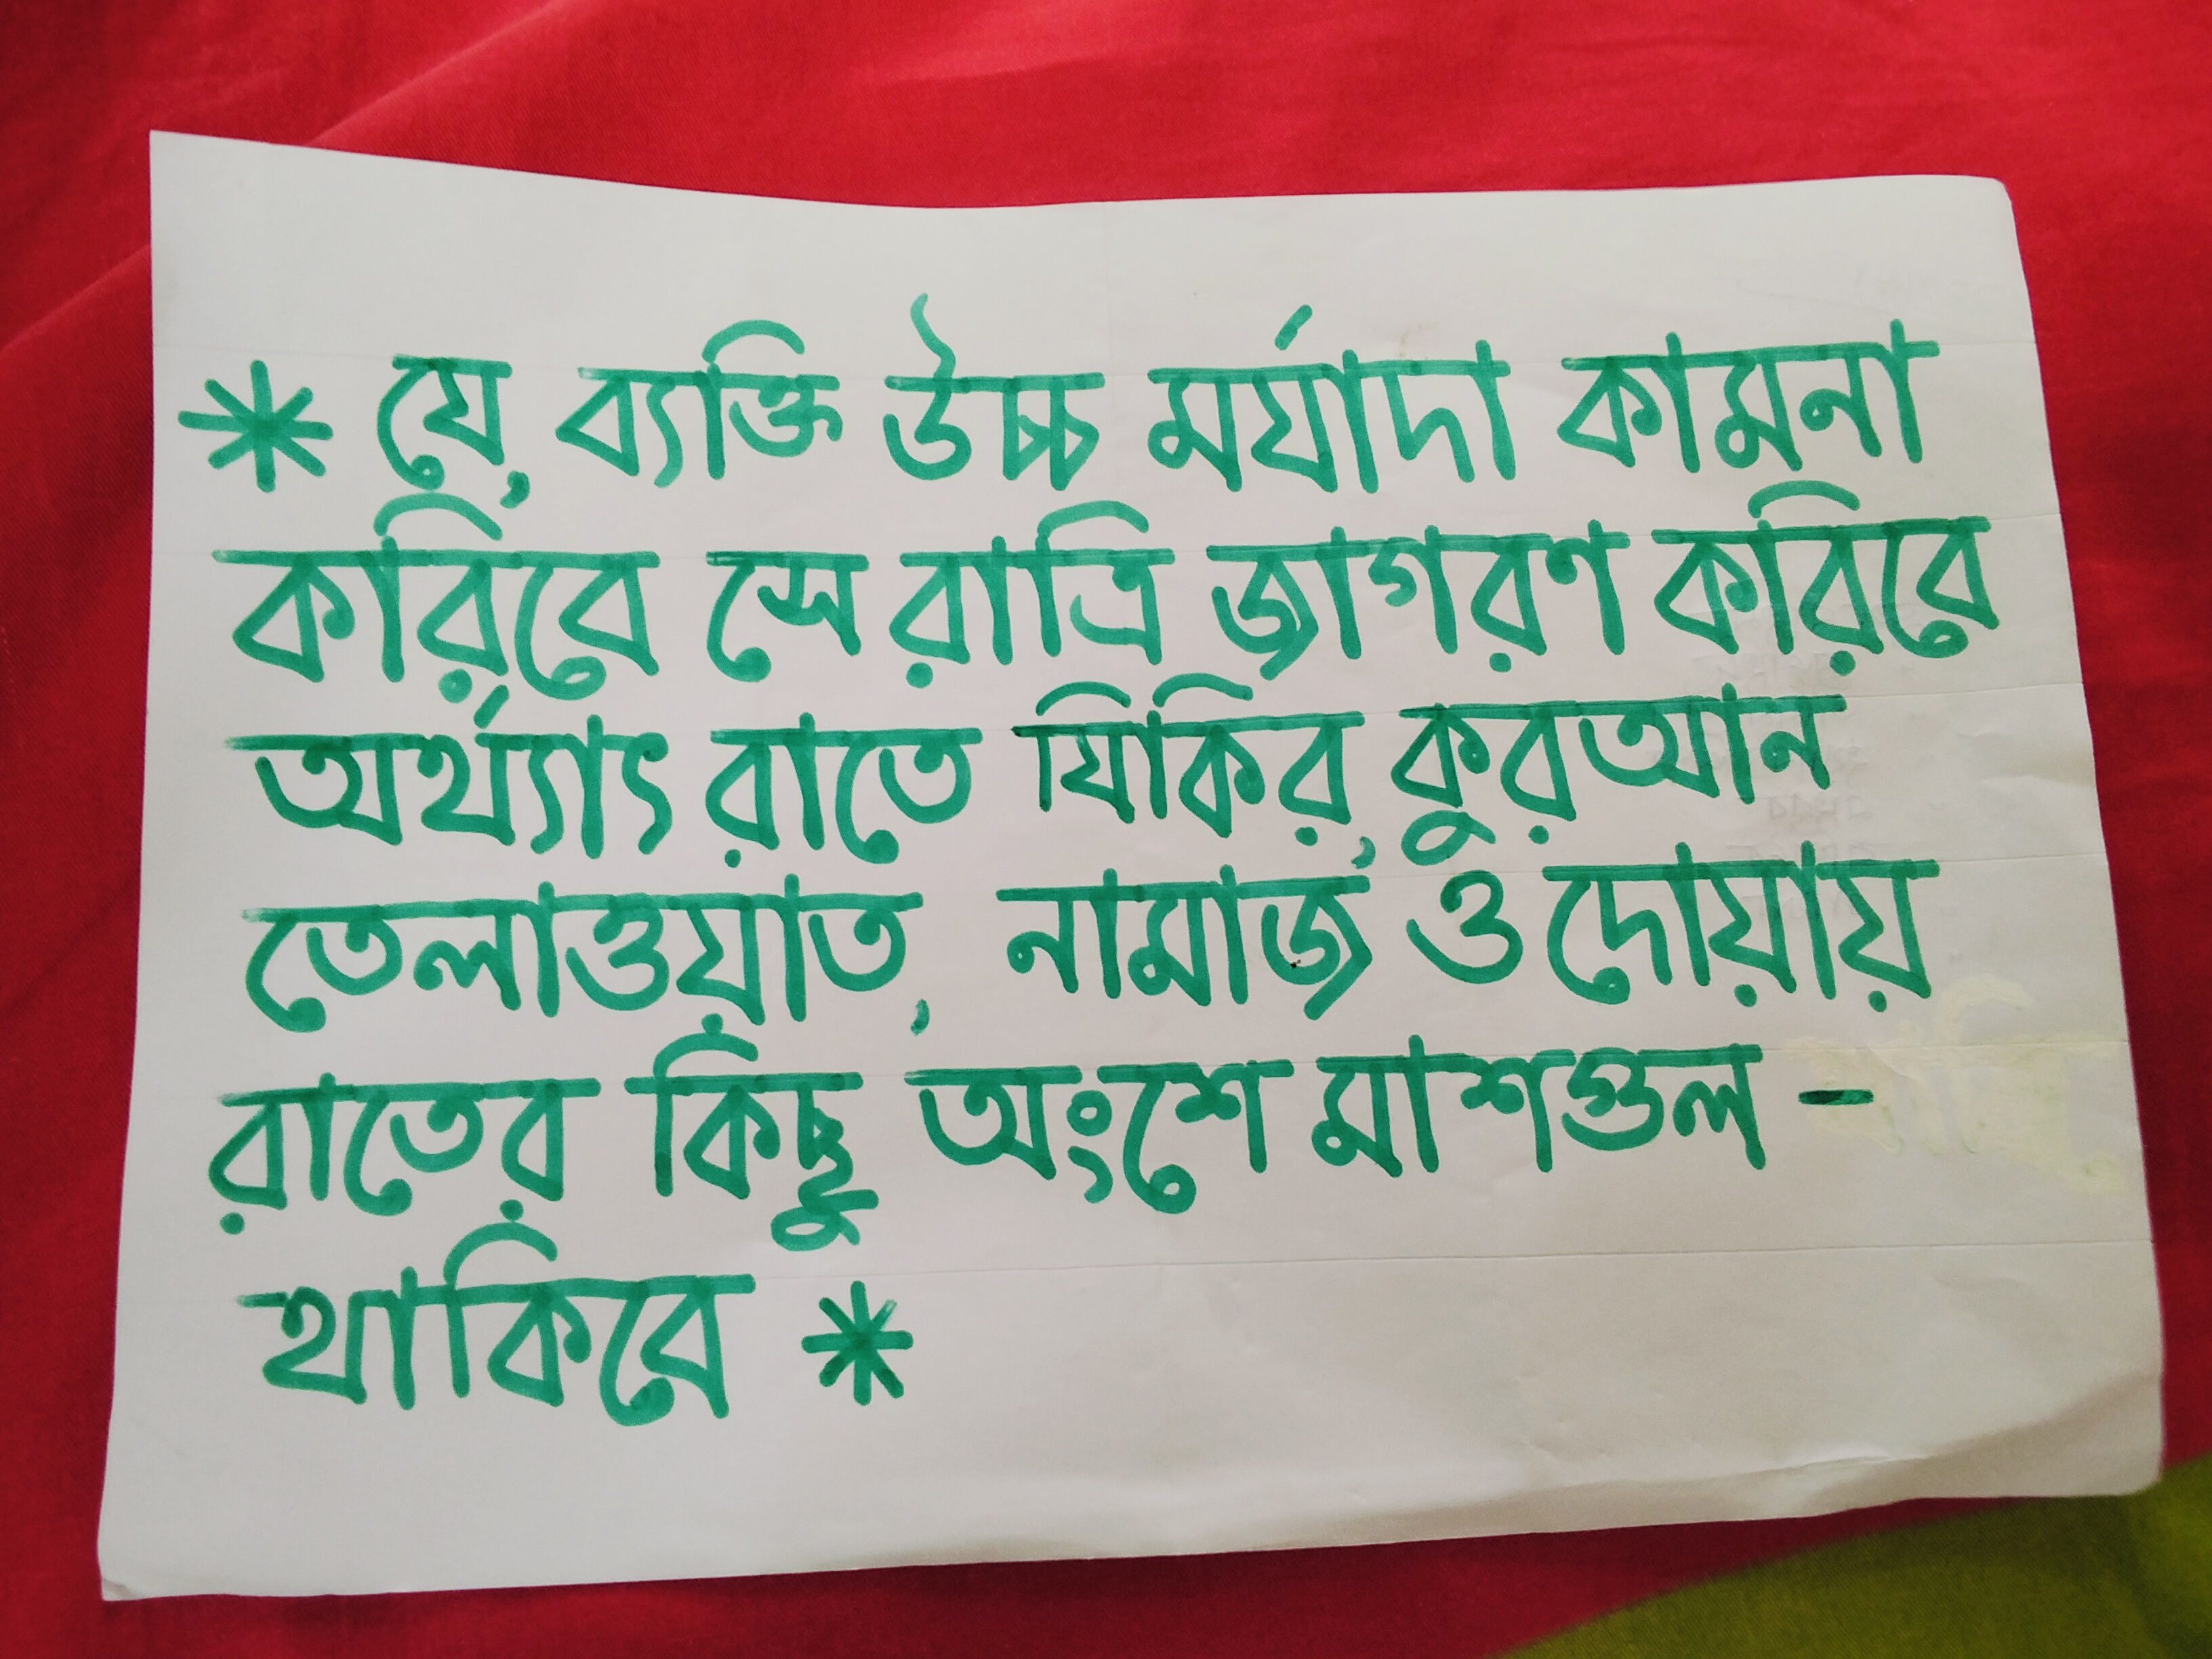 * যে, ব্যক্তি উচ্চ মর্যাদা কামনা
করিবে সে রাত্রি জাগরণ করিবে
অর্থ্যাৎ রাতে যিকির, কুরআন
তেলাওয়াত, নামাজ ও দোয়ায়
রাতের কিছু অংশে মাশগুল -
থাকিবে *